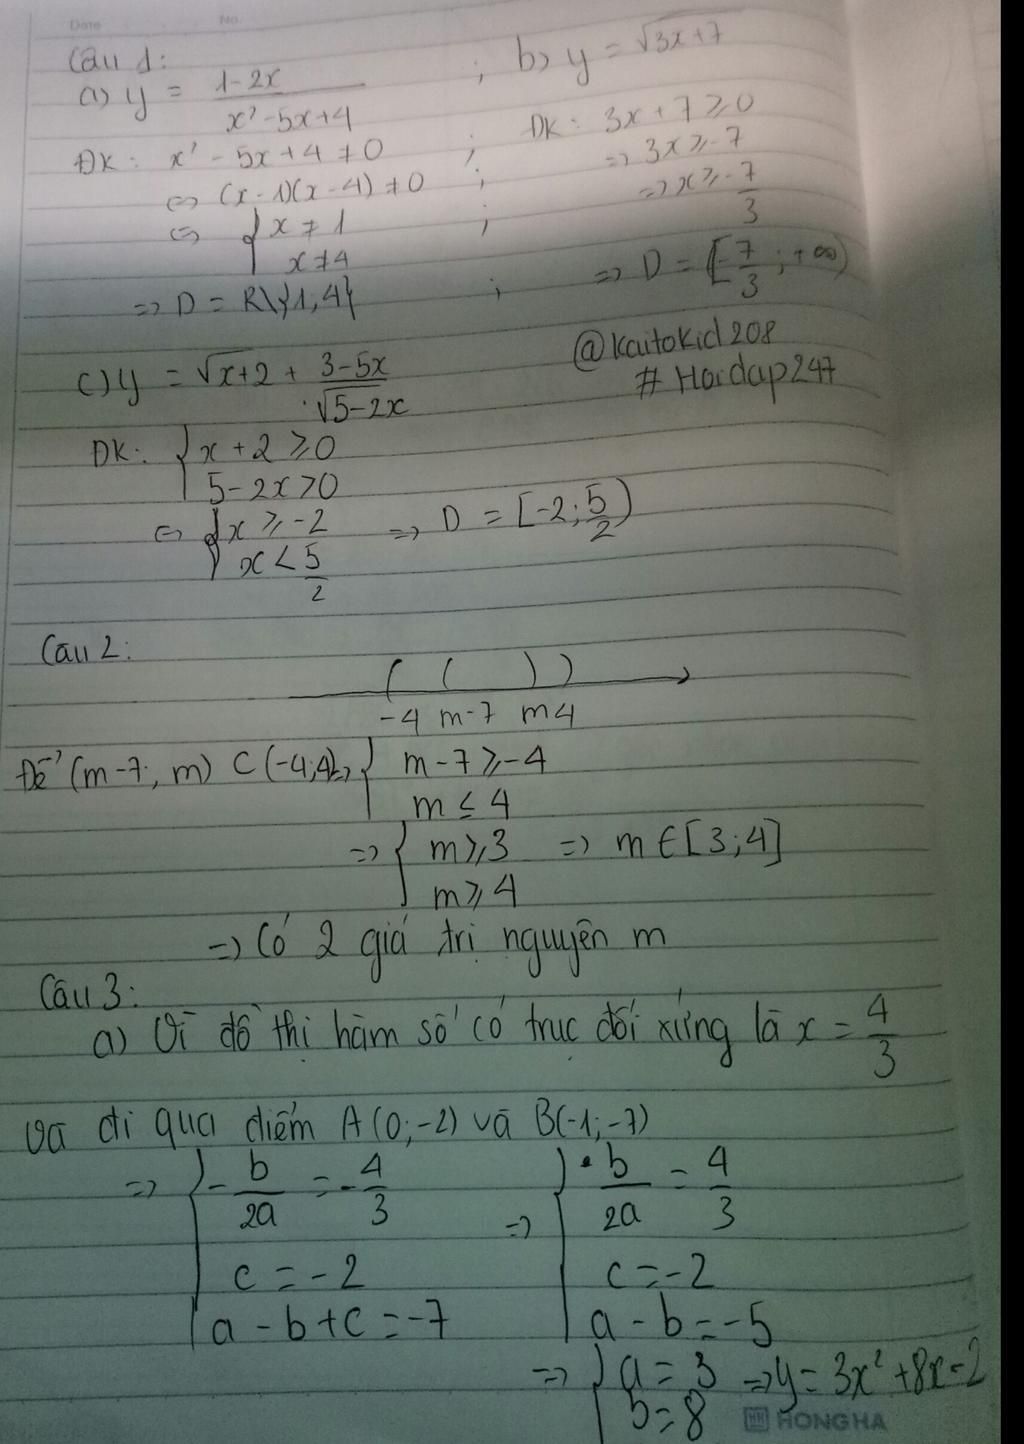 Date No.
Câu 1:
a) y = 1-2x / x²-5x+4 ; b) y = √3x+7
ĐK: x² - 5x + 4 ≠ 0 ; ĐK: 3x + 7 ≥ 0
⇔ (x-1)(x-4) ≠ 0 ; => 3x ≥ -7
⇔ { x ≠ 1 ; => x ≥ -7/3
x ≠ 4
=> D = R\{1;4} ; => D = [-7/3; +∞)
c) y = √x+2 + 3-5x / √5-2x
@kaitokid208
#Hoidap247
ĐK: { x + 2 ≥ 0
5 - 2x > 0
⇔ { x ≥ -2 => D = [-2; 5/2)
x < 5/2
Câu 2:
( ( ) )
-4 m-7 m 4
Để (m-7; m) ⊂ (-4;4) ⇔ { m-7 ≥ -4
m ≤ 4
=> { m ≥ 3 => m ∈ [3;4]
m ≥ 4
=> Có 2 giá trị nguyên m
Câu 3:
a) Vì đồ thị hàm số có trục đối xứng là x = 4/3
và đi qua điểm A(0;-2) và B(-1;-7)
=> { -b/2a = -4/3 => { b/2a = 4/3
c = -2 c = -2
a - b + c = -7 a - b = -5
=> { a = 3 => y = 3x² + 8x - 2
b = 8
HONG HA